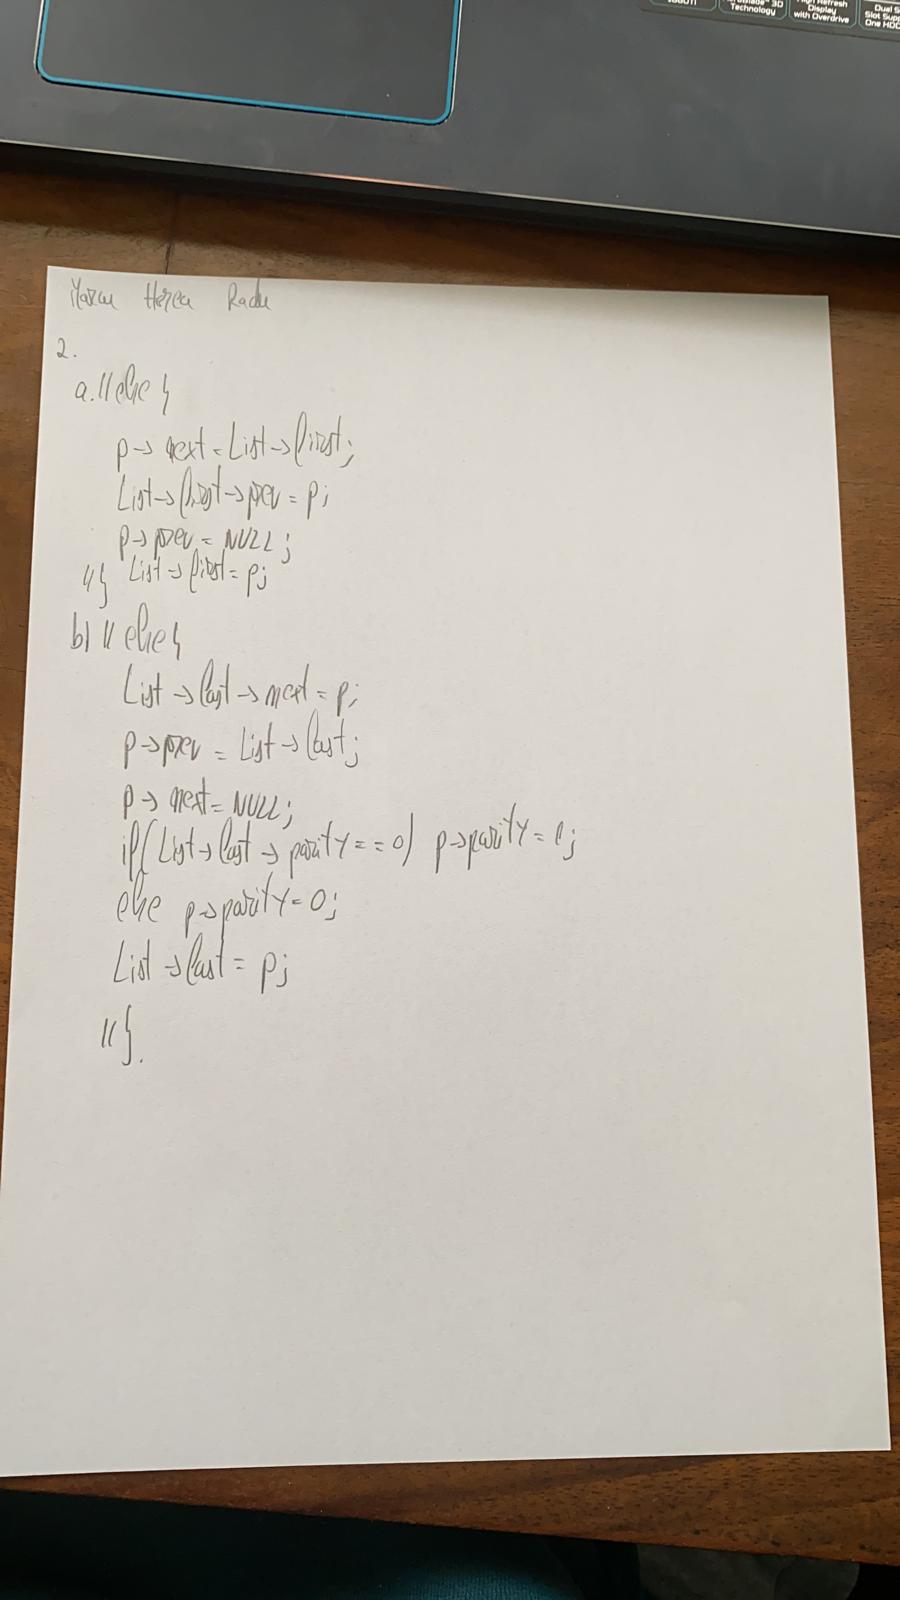 Technology
Display
with Overdrive
Dual S
Slot Supp
One HDD
Horea Radu
2.
a. // else {
p -> next = List -> first;
List -> first -> prev = p;
p -> prev = NULL;
// } List -> first = p;
b) // else {
List -> last -> next = p;
p -> prev = List -> last;
p -> next = NULL;
if ( List -> last -> parity == 0) p -> parity = 1;
else p -> parity = 0;
List -> last = p;
// }.